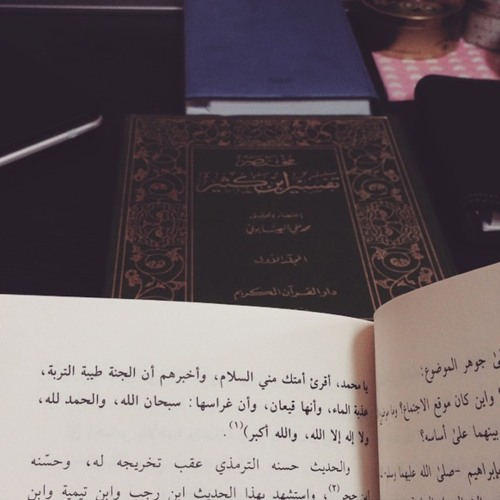 مختصر
تفسير ابن كثير
اختصار وتحقيق
محمد علي الصابوني
المجلد الأول
دار القرآن الكريم
يا محمد، أقرئ أمتك مني السلام، وأخبرهم أن الجنة طيبة التربة،
عذبة الماء، وأنها قيعان، وأن غراسها: سبحان الله، والحمد لله،
ولا إله إلا الله، والله أكبر)(١).
والحديث حسنه الترمذي عقب تخريجه له، وحسّنه
ابن حجر(٢)، واستشهد بهذا الحديث ابن رجب وابن تيمية وابن
جوهر الموضوع:
وأين كان موقع الاجتماع؟ وما
بينهما على أساسه؟
إبراهيم -صلى الله عليهما وسلم-